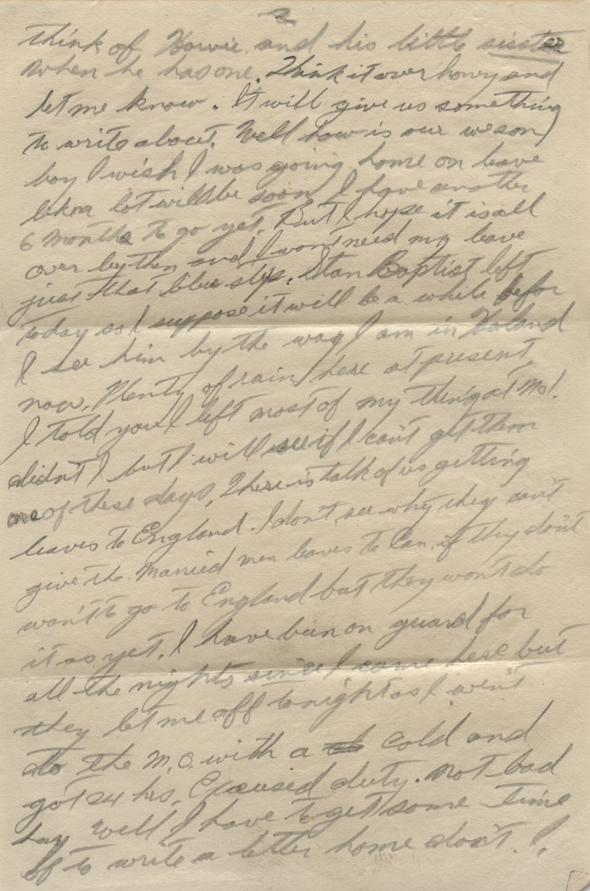 2
think of Howie and his little sisster
when he has one. Think it over howy and
let me know. It will give us something
to write about. Well how is our
boy I wish I was going home on leave
lot will be soon. I have another
6 months to go yet. But I hope it is all
over by then and I won't need my leave
just that blue slip. Stan Baptist left
today so I suppose it will be a while befor
I see him by the way I am in Holand
now. Plenty of rain here at present.
I told you I left most of my things at no 1.
didn't I but I will see if I can't get them
one of these days. There is talk of us getting
leaves to England. I don't see why they can't
give the married men leaves to Can. if they don't
want to go to England but they won't do
it as yet. I have been on guard for
all the nights since I came here but
they let me off tonight as I went
to the M.O. with a cold and
got 24 hrs. Excused duty. Not bad
hay well I have to get some time
off to write a letter home don't I.